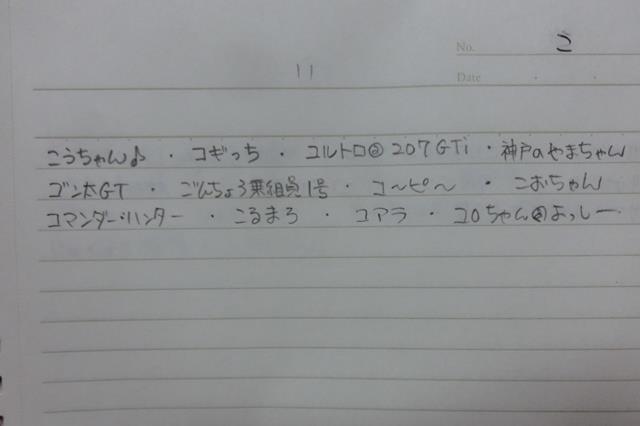 No. こ
11
Date
こうちゃん♪ ・ コギっち ・ コルトロ② 207GTi ・ 神戸のやまちゃん
ゴン太GT ・ ごんちょろ乗組員1号 ・ コ〜ピ〜 ・ こおちゃん
コマンダー・ハンター ・ こるまろ ・ コアラ ・ コロちゃん よっしー